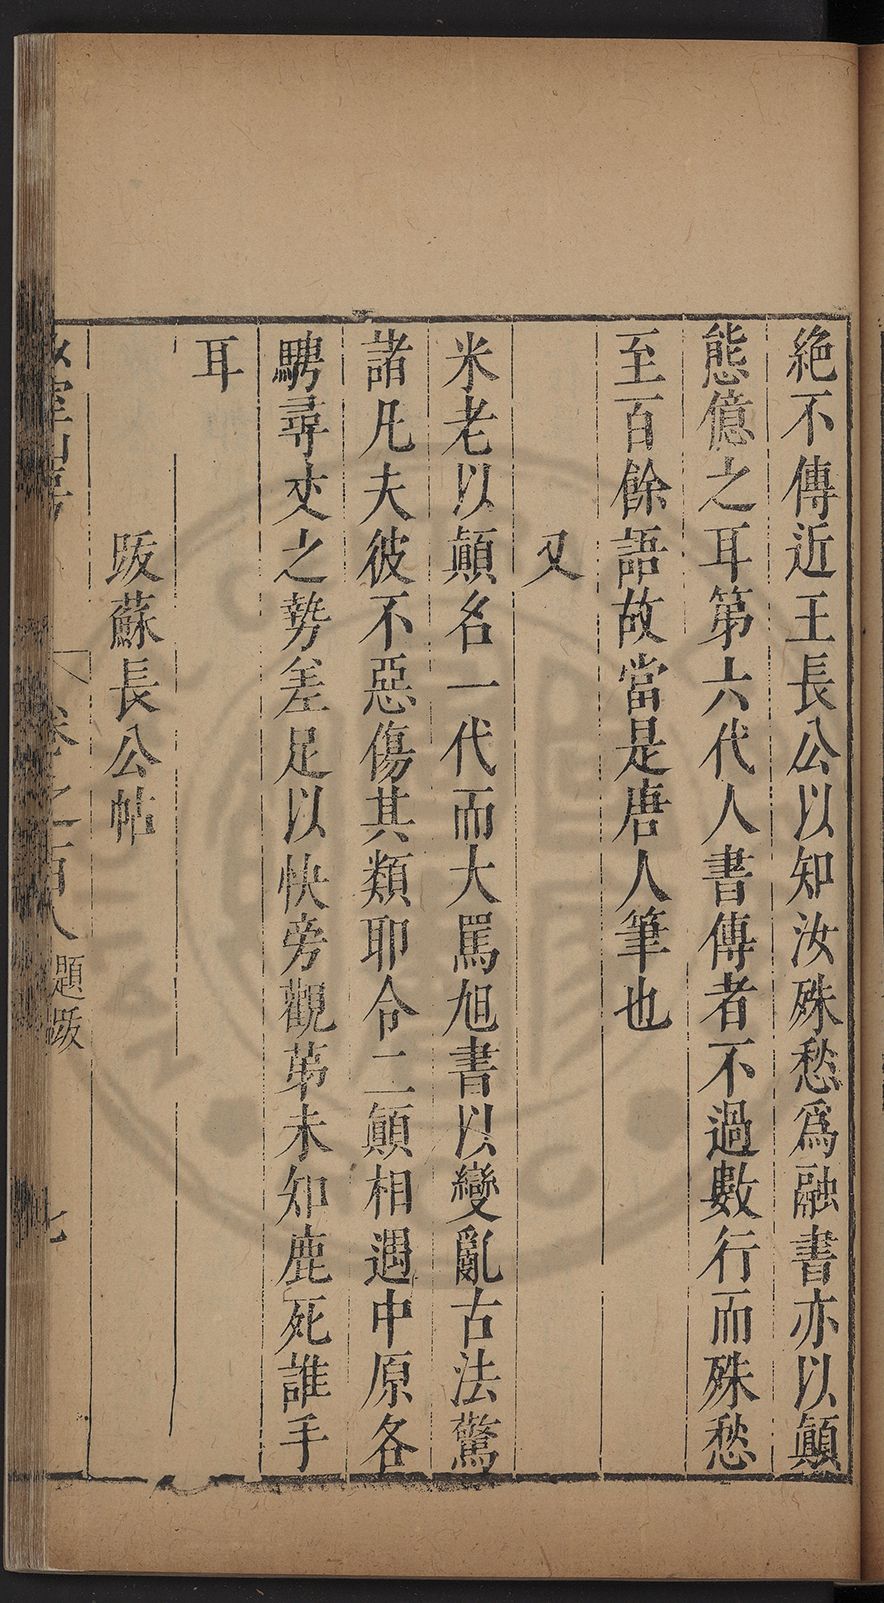 絶不傳近王長公以知汝殊愁爲融書亦以顛
態億之耳第六代人書傳者不過數行而殊愁
至百餘語故當是唐人筆也
又
米老以顛名一代而大罵旭書以變亂古法驚
諸凡夫彼不惡傷其類耶令二顛相遇中原各
騁尋丈之勢差足以快旁觀第未知鹿死誰手
耳
跋蘇長公帖
卷之百八 題跋 七